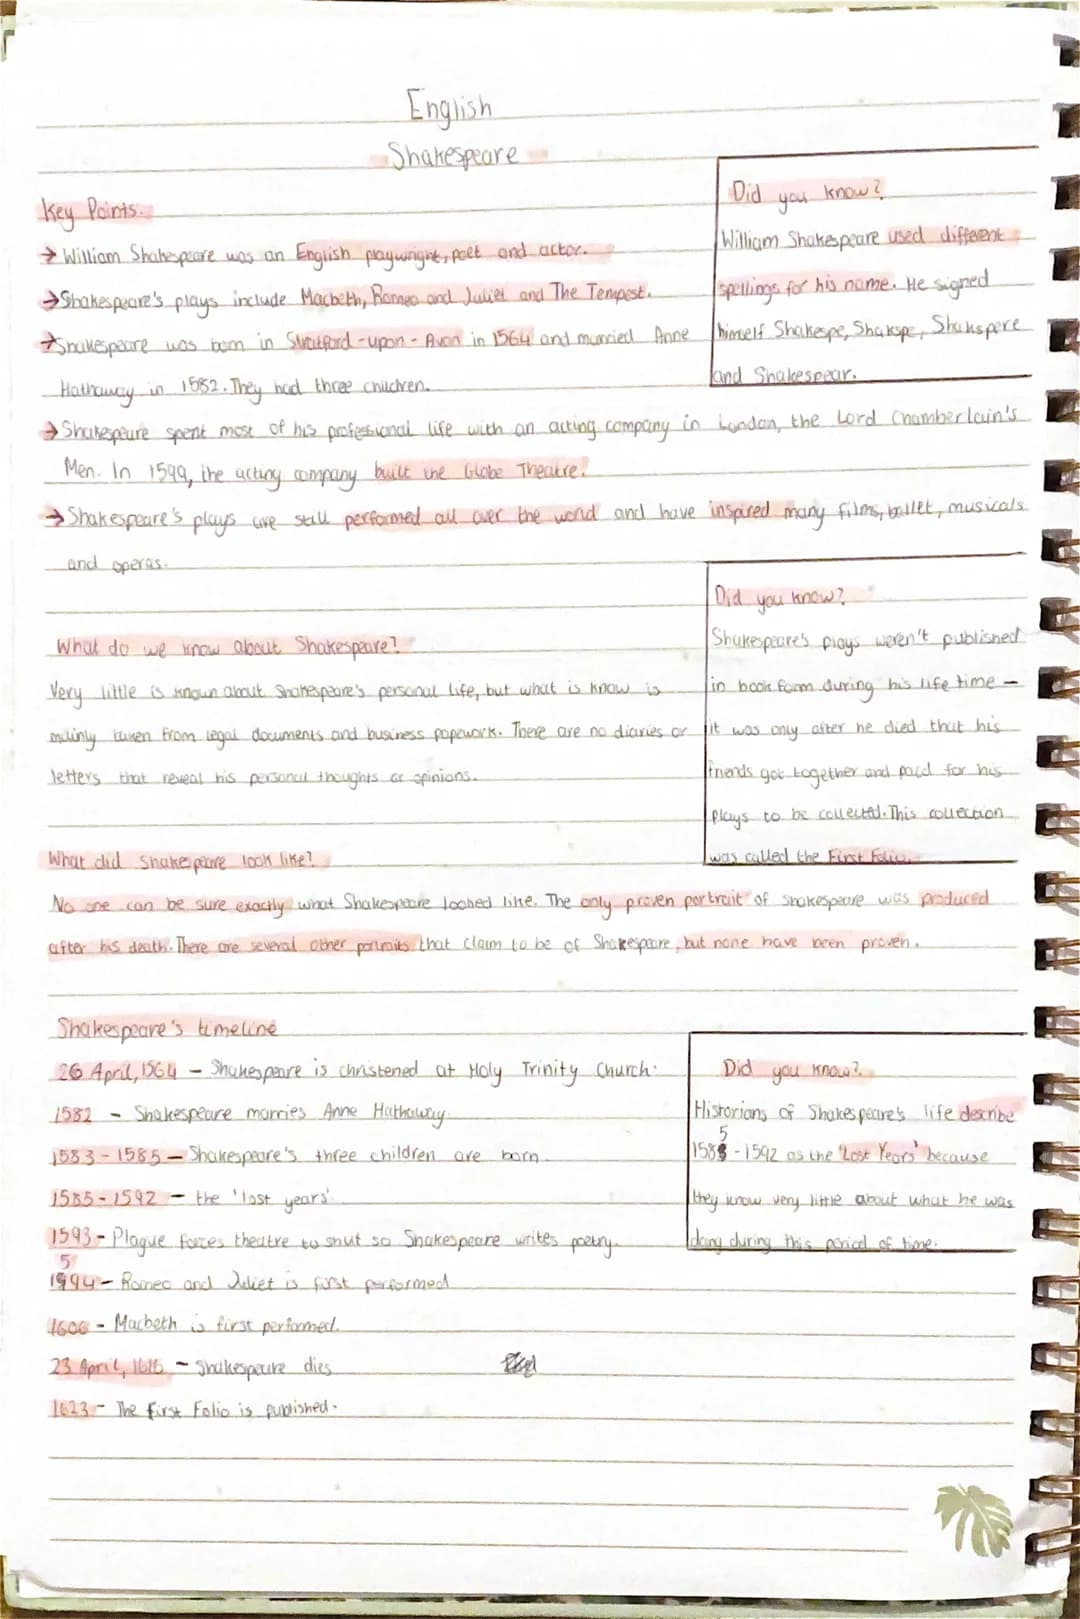 English
Shakespeare
Key Points:
→ William Shakespeare was an English playwright, poet and actor.
→ Shakespeare's plays include Macbeth, Romeo and Juliet and The Tempest.
→ Shakespeare was born in Stratford-upon-Avon in 1564 and married Anne
Hathaway in 1582. They had three children.
→ Shakespeare spent most of his professional life with an acting company in London, the Lord Chamberlain's
Men. In 1599, the acting company built the Globe Theatre.
→ Shakespeare's plays are still performed all over the world and have inspired many films, ballet, musicals
and operas.
Did you know?
William Shakespeare used different
spellings for his name. He signed
himself Shakespe, Shakspe, Shakspere
and Shakespear.
What do we know about Shakespeare?
Very little is known about Shakespeare's personal life, but what is know is
mainly taken from legal documents and business papework. There are no diaries or
letters that reveal his personal thoughts or opinions.
Did you know?
Shakespeare's plays weren't published
in book form during his life time –
it was only after he died that his
friends got together and paid for his
plays to be collected. This collection
was called the First Folio.
What did Shakespeare look like?
No one can be sure exactly what Shakespeare looked like. The only proven portrait of Shakespeare was produced
after his death. There are several other portraits that claim to be of Shakespeare, but none have been proven.
Shakespeare's timeline
26 April, 1564 – Shakespeare is christened at Holy Trinity Church.
1582 – Shakespeare marries Anne Hathaway.
1583-1585 – Shakespeare's three children are born.
1585-1592 – the 'lost years'.
1593 – Plague forces theatre to shut so Shakespeare writes poetry.
1594 – Romeo and Juliet is first performed
1606 – Macbeth is first performed.
23 April, 1616 – Shakespeare dies
1623 – The First Folio is published.
Did you know?
Historians of Shakespeare's life describe
1585-1592 as the 'Lost Years' because
they know very little about what he was
doing during this period of time.